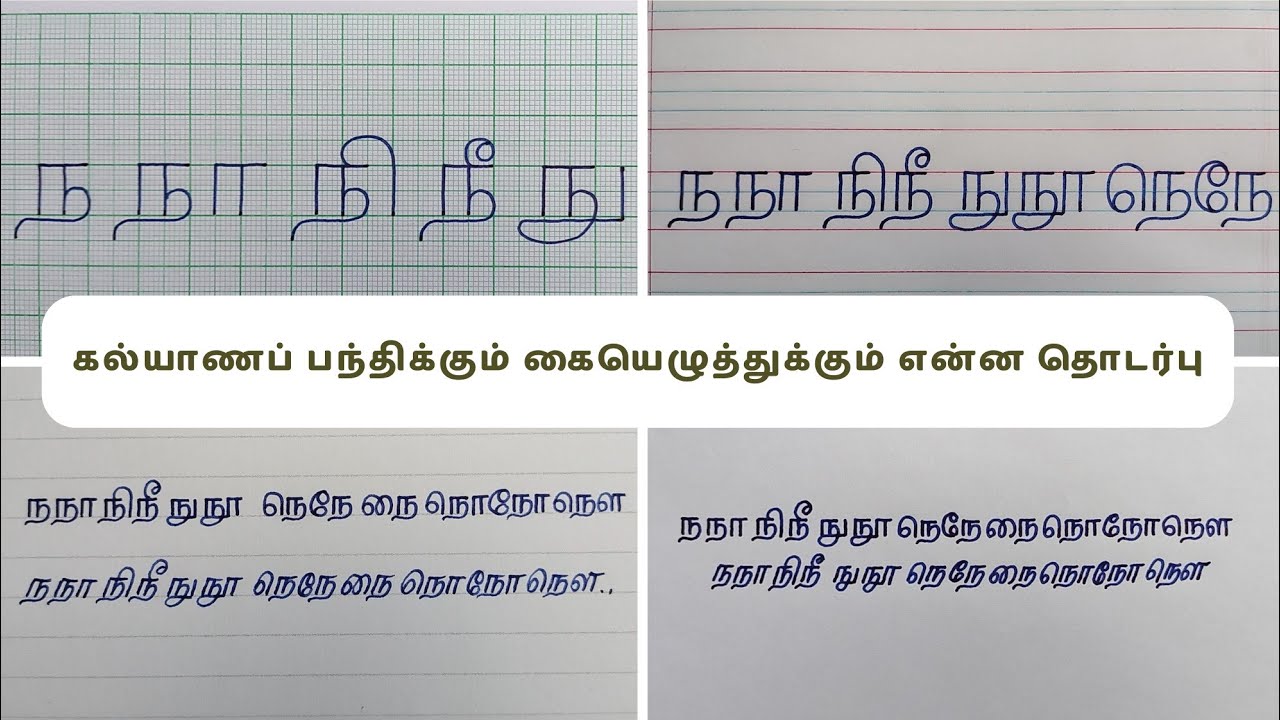 ந நா நி நீ நு
நநா நிநீ நுநூ நெநே
கல்யாணப் பந்திக்கும் கையெழுத்துக்கும் என்ன தொடர்பு
நநா நிநீ நுநூ நெநே நை நொநோநௌ
நநா நிநீ நுநூ நெநேநை நொநோநௌ..
நநா நிநீ நுநூ நெநேநைநொநோநௌ
நநாநிநீ நுநூ நெநேநைநொநோநௌ